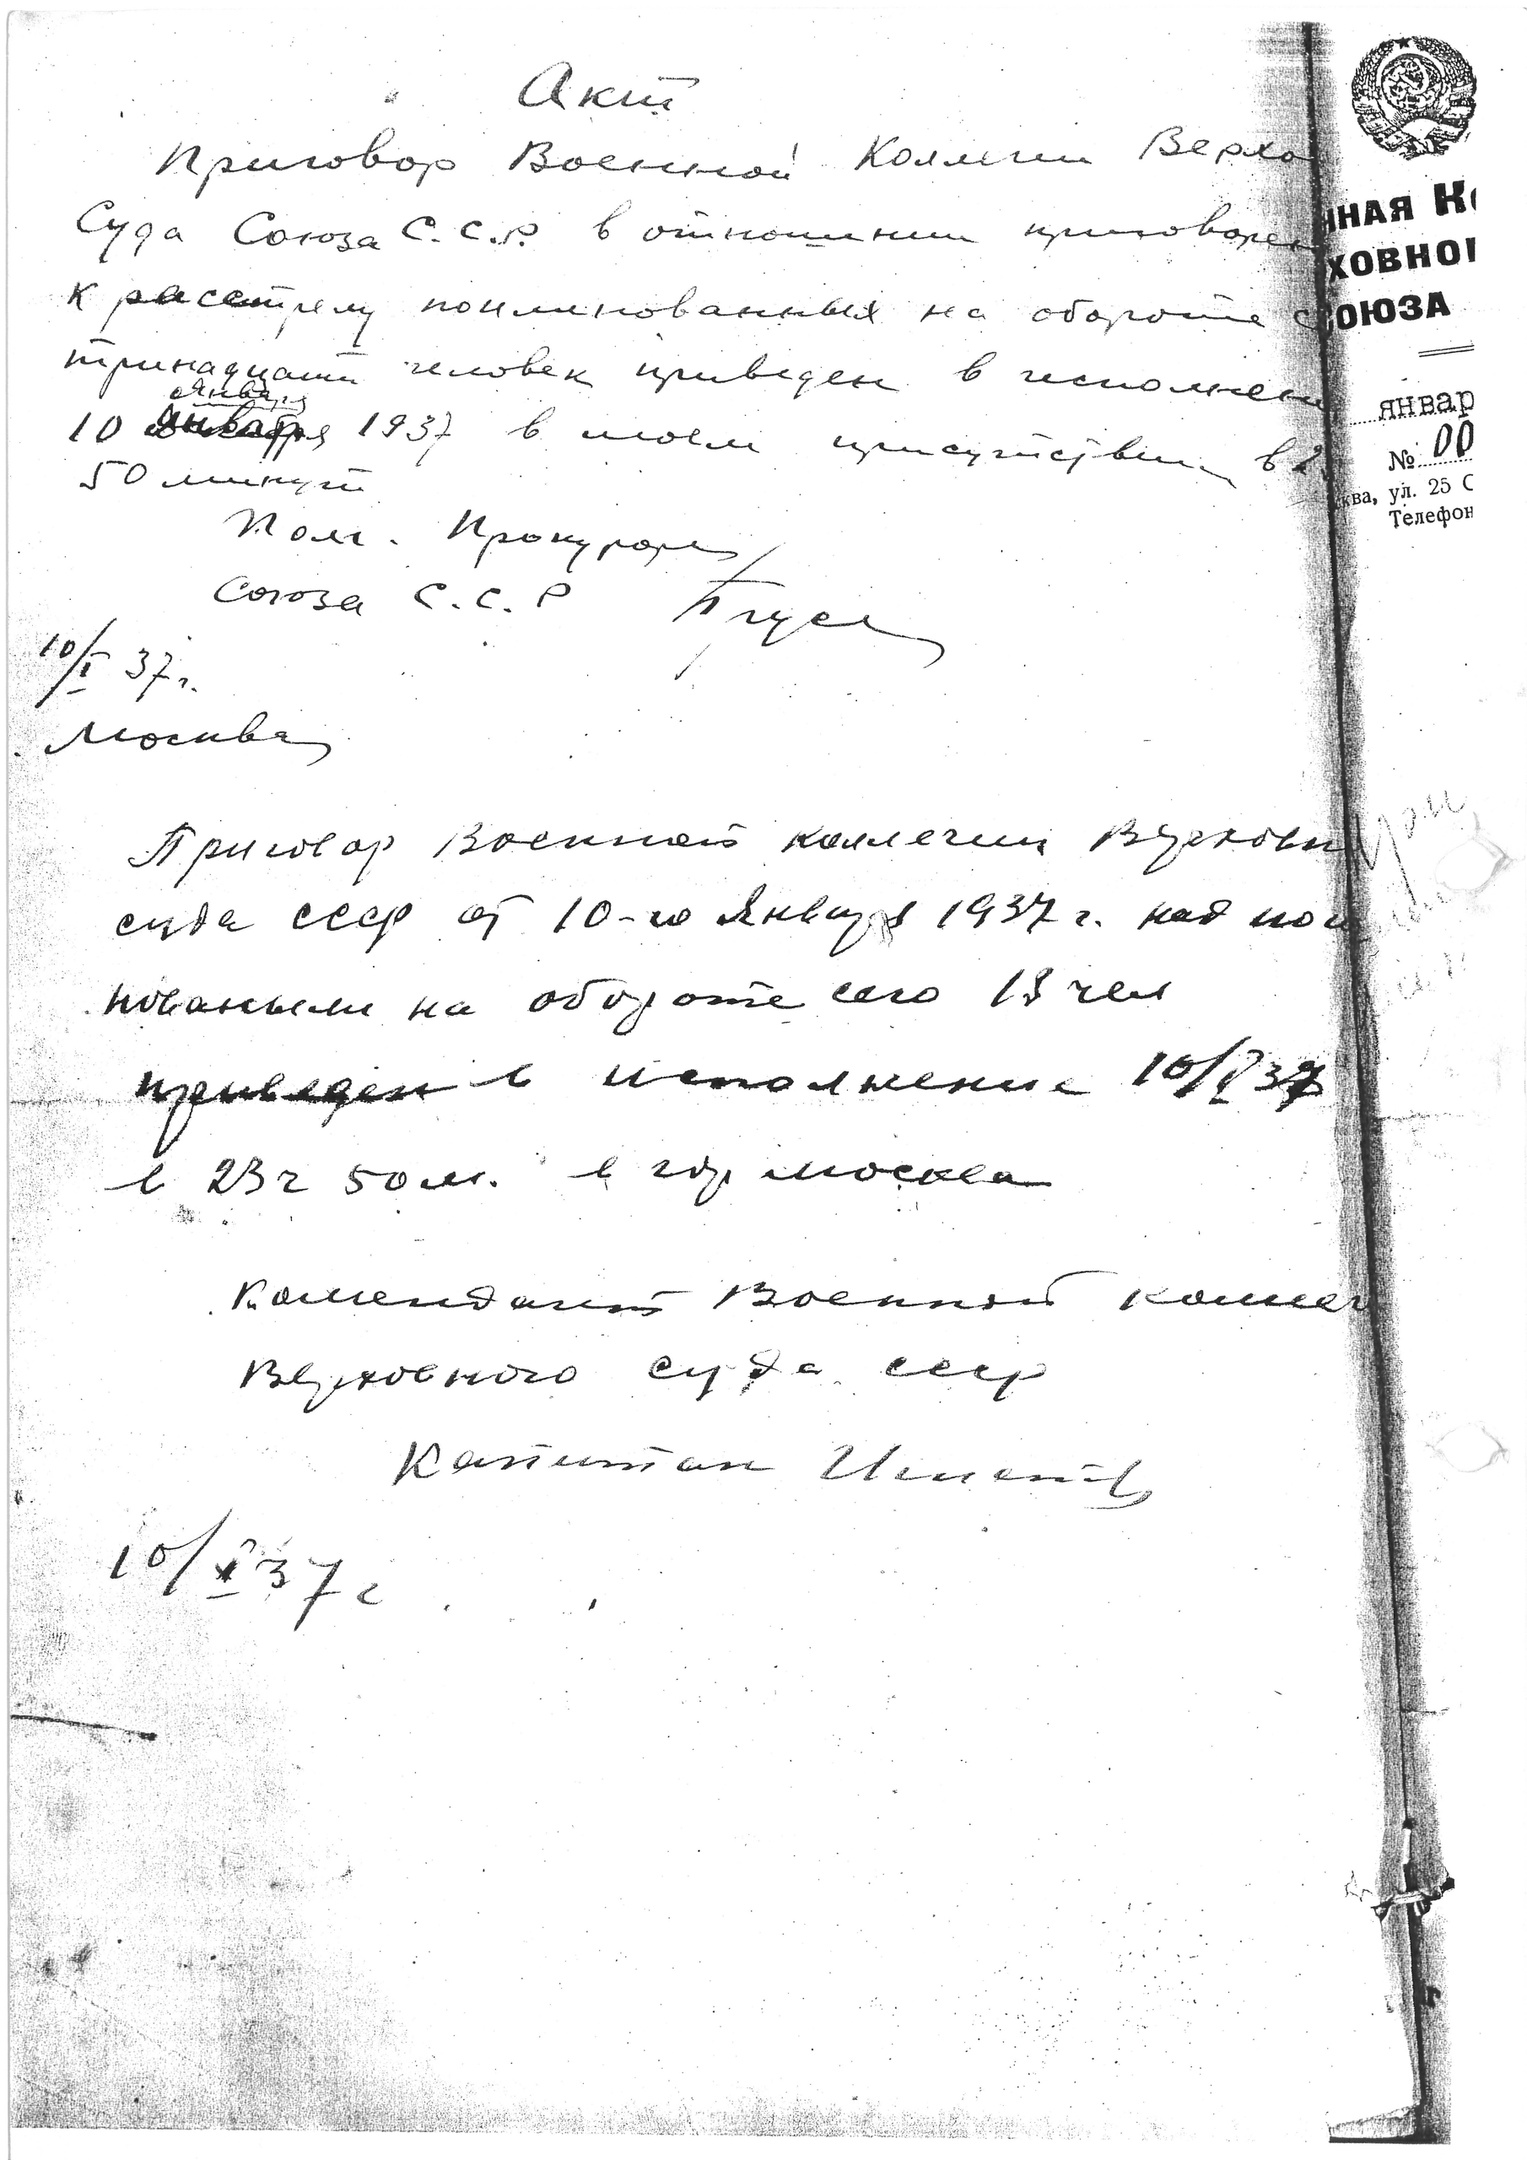 Акт
Приговор Военной Коллегии Верхо
Суда Союза С.С.Р. в отношении приговорен
к расстрелу поименованных на обороте с
тринадцати человек приведен в исполнени
января
10 января 1937 в моем присутствии в 2
50 минут
Пом. Прокурора
Союза С.С.Р
10/I 37 г.
Москва
Приговор Военной коллегии Верховн
суда СССР от 10-го января 1937 г. над пои
нованыли на обороте сего 13 чел
приведен в исполнение 10/I 37
в 23 ч 50 м. в гор Москва
Комендант Военной коллег
Верховного суда СССР
Капитан
10/I 37 г
ННАЯ К
ХОВНОГ
ОЮЗА
январ
№ 00
ква, ул. 25 С
Телефон